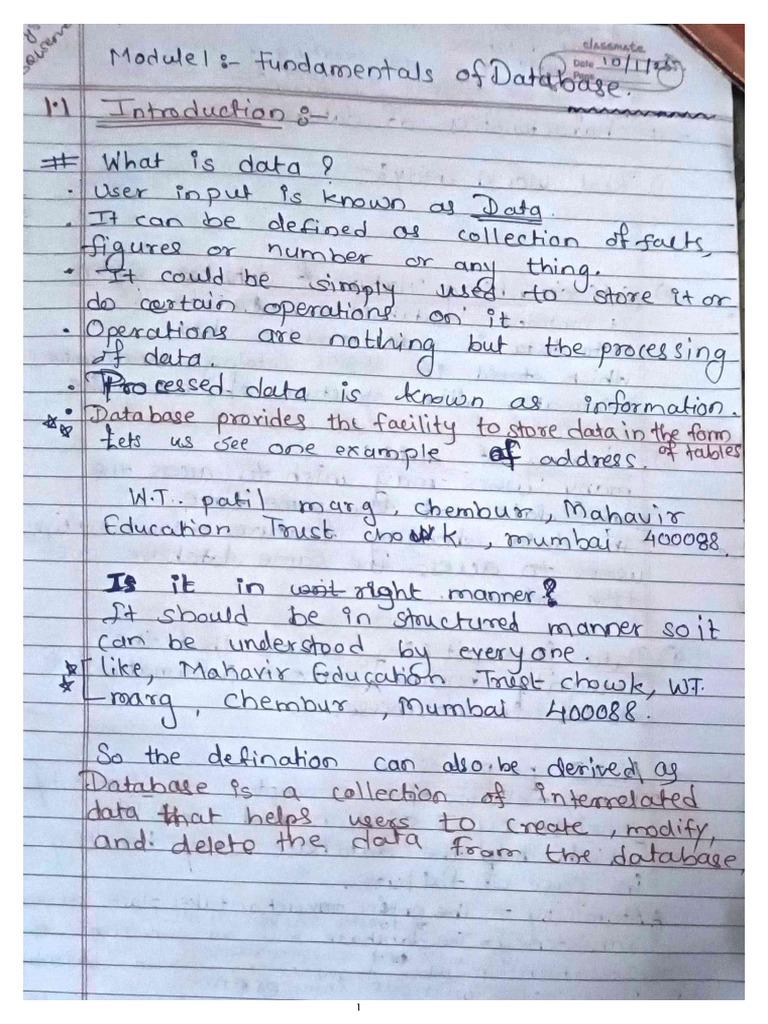 classmate
Date 10/1/
Page
Module 1 :- Fundamentals of Database.
1.1 Introduction :-
# What is data ?
• User input is known as Data.
• It can be defined as collection of facts,
figures or number or any thing.
• It could be simply used to store it or
do certain operations on it.
• Operations are nothing but the processing
of data.
• Processed data is known as information.
• Database provides the facility to store data in the form
of tables
Lets us see one example of address.
W.T. patil marg, chembur, Mahavir
Education Trust chowk, mumbai 400088.
Is it in right manner?
It should be in structured manner so it
can be understood by everyone.
like, Mahavir Education Trust chowk, W.T.
marg, Chembur, Mumbai 400088.
So the defination can also be derived as
Database is a collection of interrelated
data that helps users to create, modify,
and delete the data from the database,
1